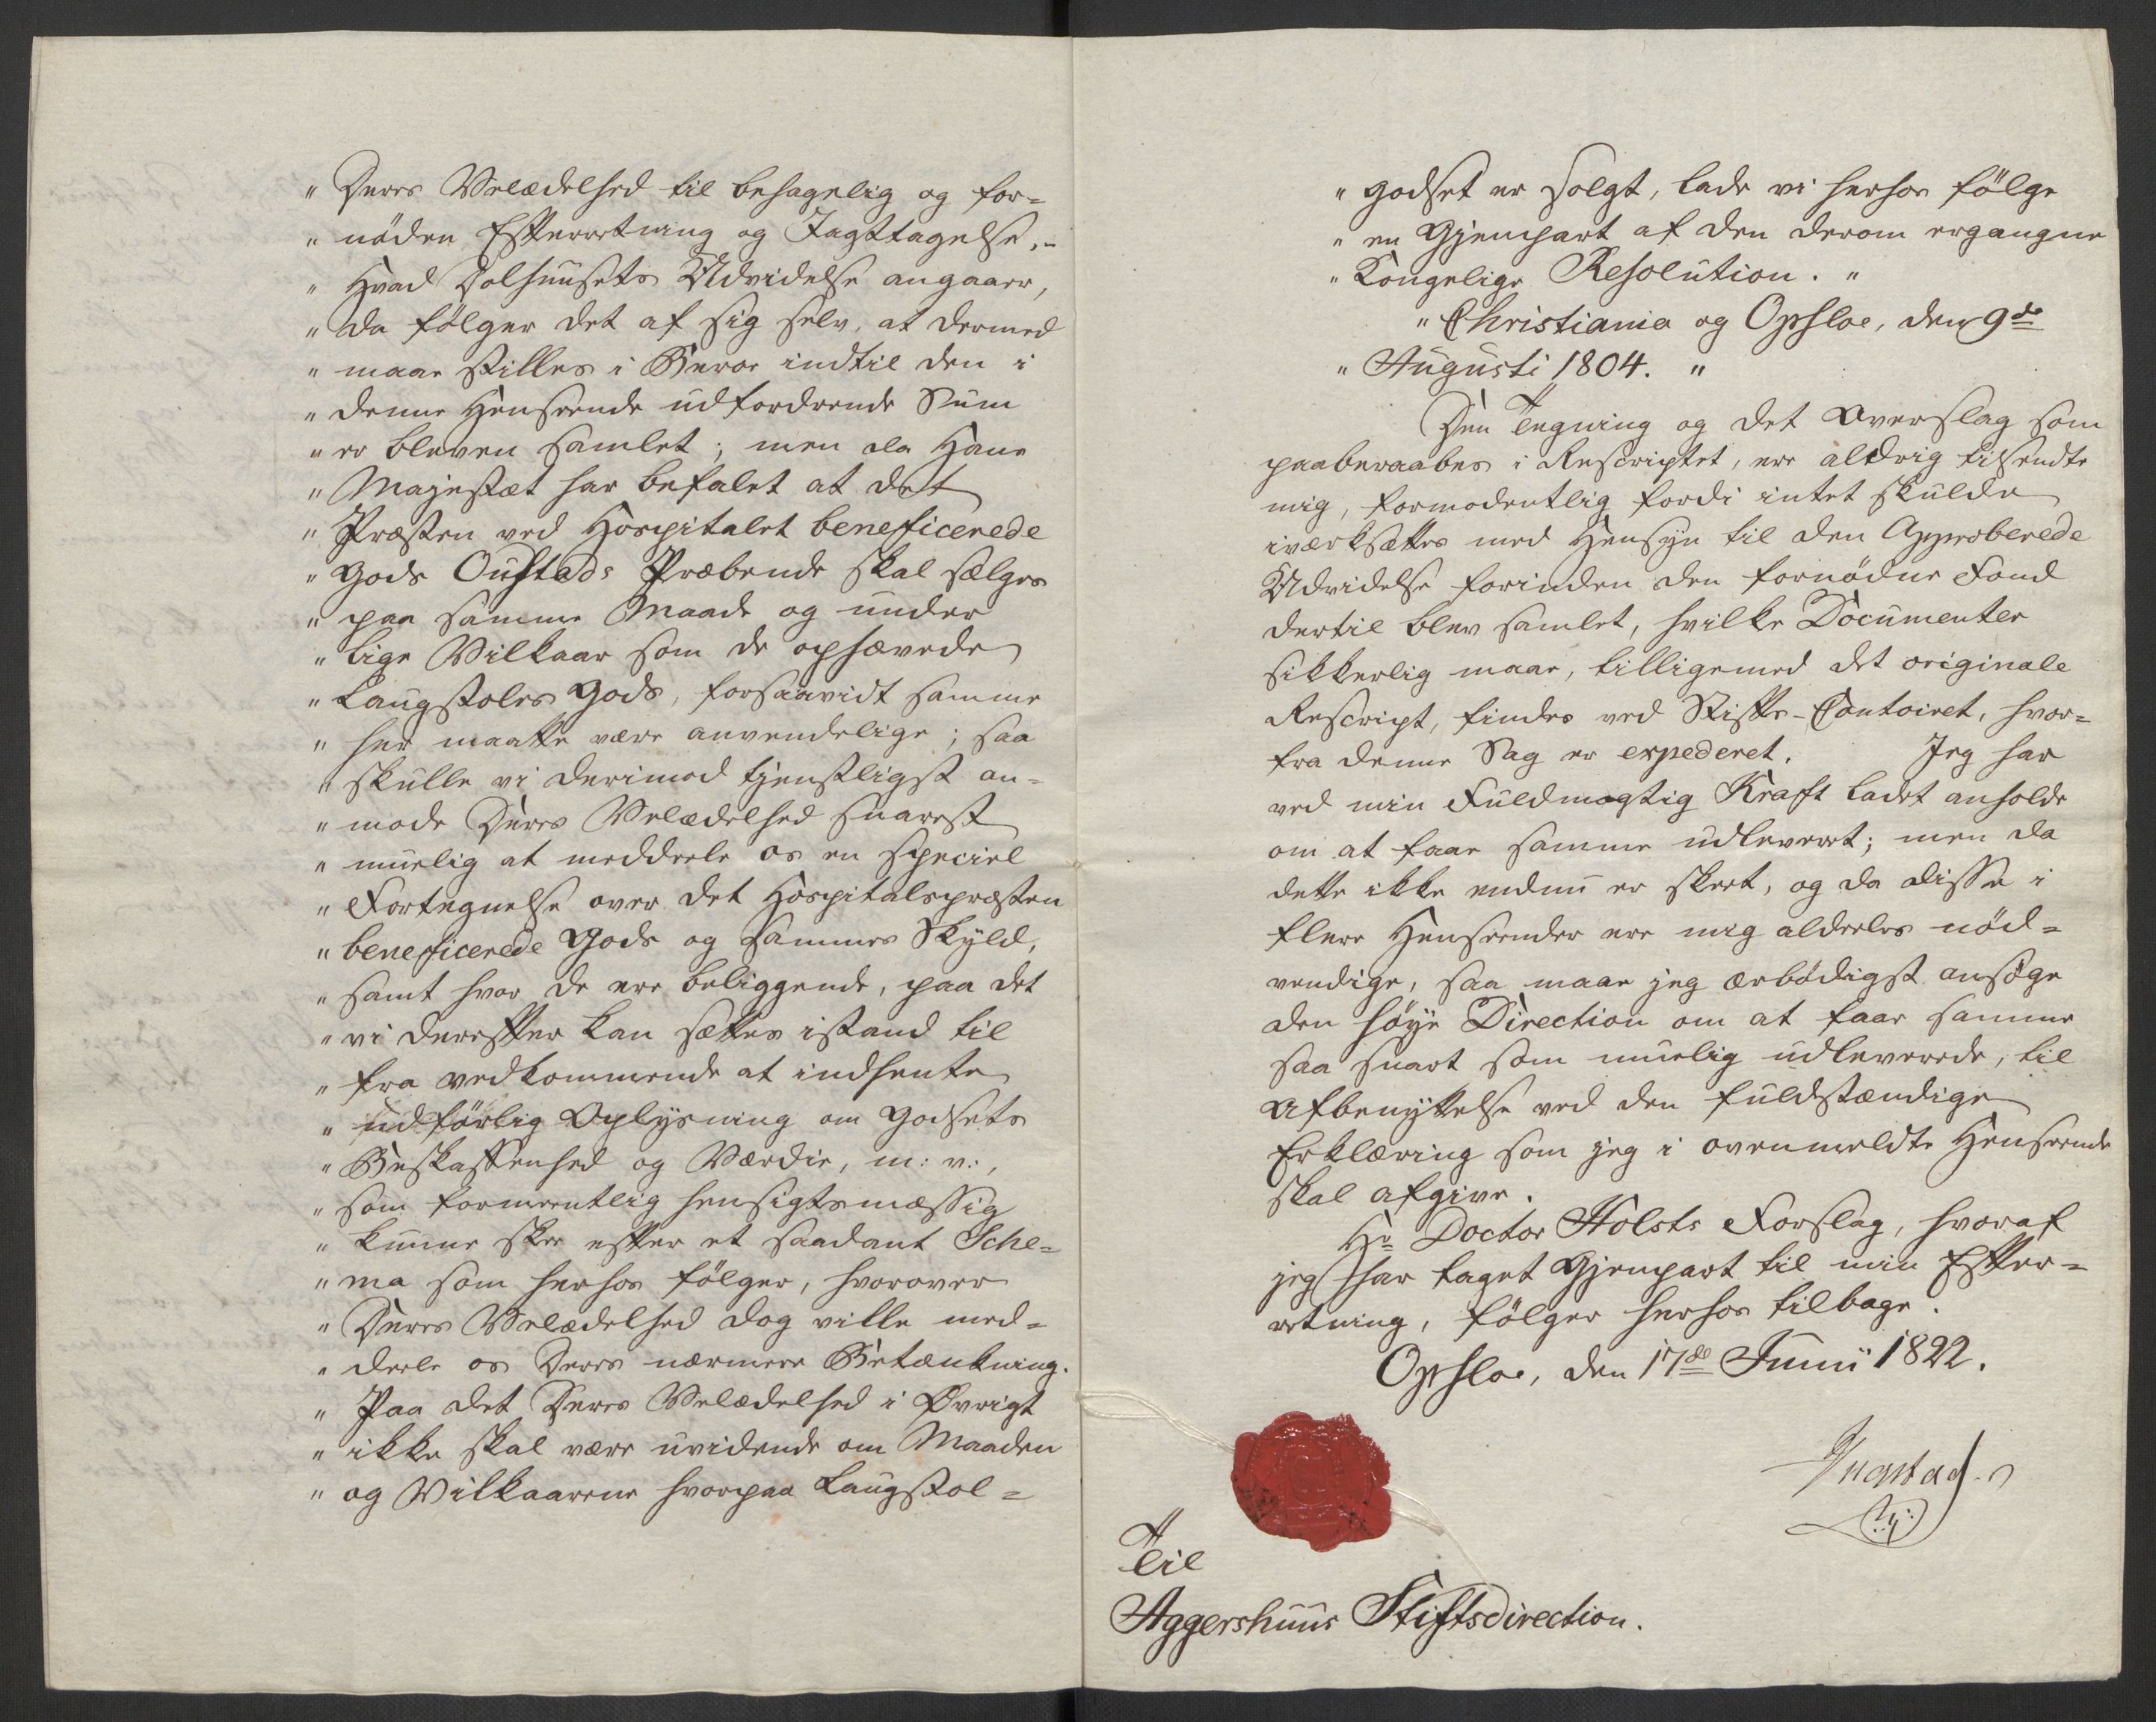 " Deres Velædelhed til behagelig og for=
" nöden Efterretning og Iagttagelse.-
" Hvad Dolhuusets Udvidelse angaaer,
" da fölger det af sig selv, at dermed
" maae stilles i Beroe indtil den i
" denne Henseende udfordrende Sum
" er bleven samlet; men da Hans
" Majestæt har befalet at det
" Præsten ved Hospitalet beneficerede
" Gods Oustads Præbende skal sælges
" paa samme Maade og under
" lige Vilkaar som de ophævede
" Laugstoles Gods, forsaavidt samme
" her maatte være anvendelige; saa
" skulle vi derimod tjenstligst an=
" mode Deres Velædelhed snarest
" muelig at meddeele os en speciel
" Fortegnelse over det Hospitalspræsten
" beneficerede Gods og sammes Skyld,
" samt hvor de ere beliggende, paa det
" vi derefter kan sættes istand til
" fra vedkommende at indhente
" udförlig Oplysning om Godsets
" Beskaffenhed og Værdie, m: v:,
" som formeentlig hensigtsmæssig
" kunne skee efter et saadant Sche=
" ma som herhos fölger, hvorover
" Deres Velædelhed dog ville med=
" deele os Deres nærmere Betænkning.
" Paa det Deres Velædelhed i Övrigt
" ikke skal være uvidende om Maaden
" og Vilkaarene hvorpaa Laugstol=
" godset er solgt, lade vi herhos fölge
" en Gjenpart af den derom ergangne
" Kongelige Resolution. "
" Christiania og Opsloe, den 9de
" Augusti 1804. "
Den Tegning og det Overslag som
paaberaabes i Rescriptet, ere aldrig tilsendte
mig, formodentlig fordi intet skulde
iværksættes med Hensyn til den Approberede
Udvidelse forinden den fornödne Fond
dertil blev samlet, hvilke Documenter
sikkerlig maae, tilligemed det originale
Rescript, findes ved Stifts-Contoiret, hvor=
fra denne Sag er expederet. Jeg har
ved min Fuldmægtig Krafft ladet anholde
om at faae samme udleveret; men da
dette ikke endnu er skeet, og da disse i
flere Henseender ere mig aldeeles nöd=
vendige, saa maae jeg ærbödigst ansöge
den höye Direction om at faae samme
saa snart som muelig udleverede, til
Afbenyttelse ved den fuldstændige
Erklæring som jeg i ovenmeldte Henseende
skal afgive.
Hr Doctor Holsts Forslag, hvoraf
jeg har taget Gjenpart til min Efter=
retning, fölger herhos tilbage.
Opsloe, den 17de Junii 1822.
Til
Aggershuus Stiftsdirection.